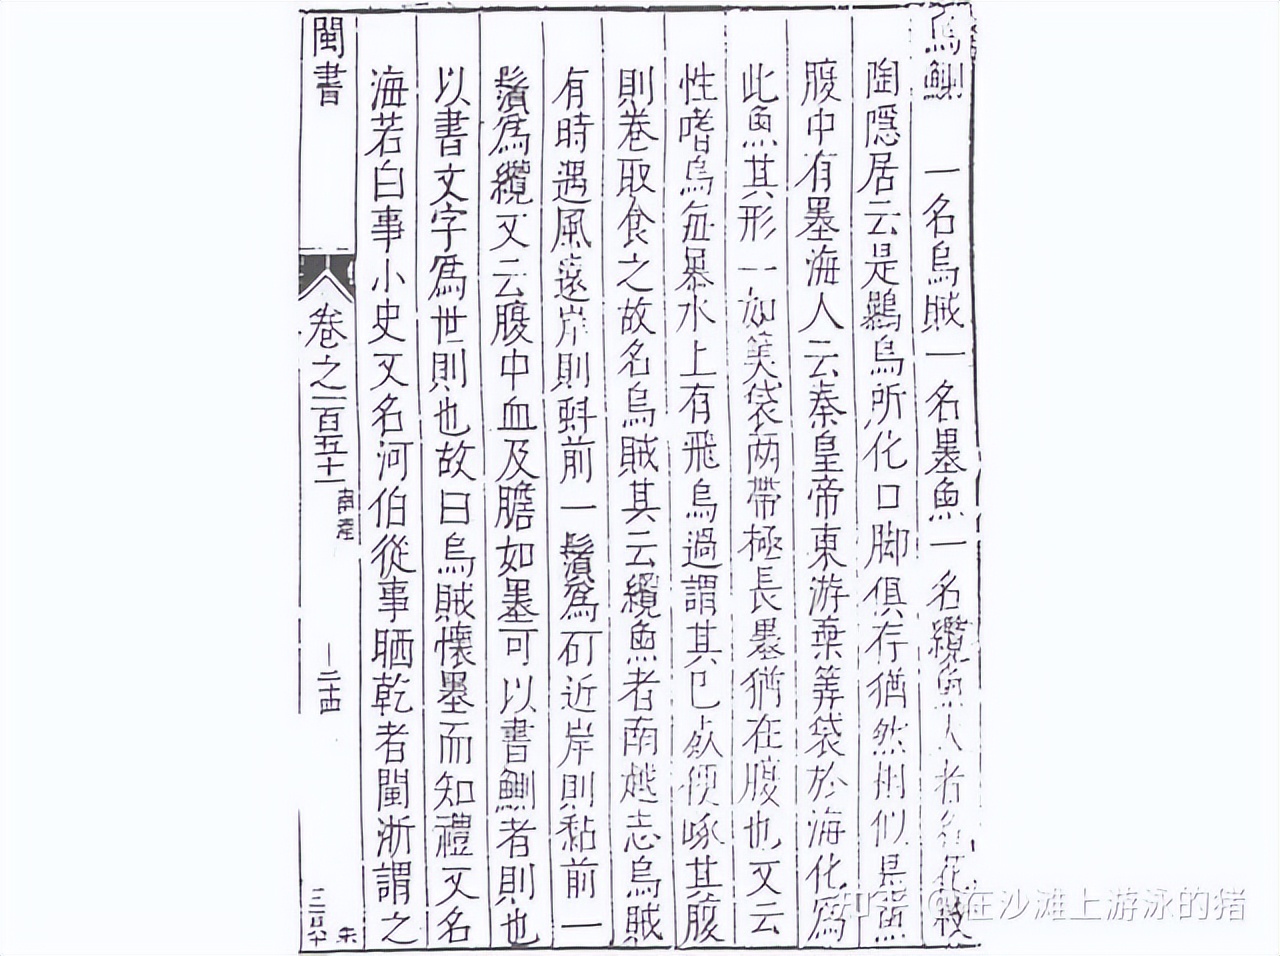 烏鰂　一名烏賊一名墨魚一名纜魚大者名花枝
陶隱居云是鸔烏所化口脚俱存猶然相似是魚
腹中有墨海人云秦皇帝東游棄筭袋於海化爲
此魚其形一如筭袋两帶極長墨猶在腹也又云
性嗜烏每暴水上有飛烏過謂其已死便啄其腹
則卷取食之故名烏賊其云纜魚者南越志烏賊
有時遇風遠岸則虯前一鬚爲矴近岸則黏前一
鬚爲纜又云腹中血及膽如墨可以書鰂者則也
以書文字爲世則也故曰烏賊懷墨而知禮又名
海若白事小史又名河伯從事晒乾者閩浙謂之
閩書
卷之一百五十一
南產
二十四
知乎 @在沙滩上游泳的猪